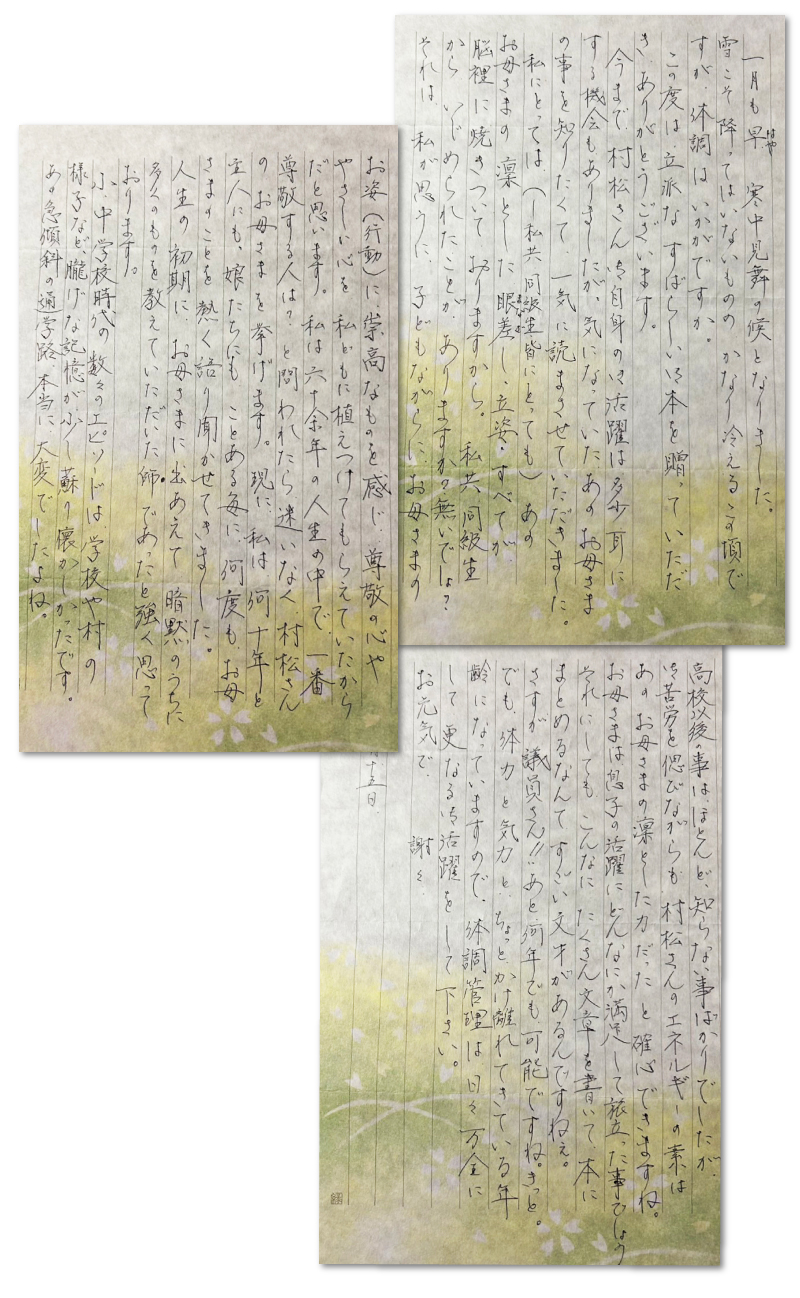 一月も早、寒中見舞の候となりました。
はや
雪こそ降ってはいないものの かなり冷えるこの頃で
すが、体調はいかがですか。
この度は、立派な すばらしい御本を贈っていただ
き、ありがとうございます。
今まで、村松さん御自身の御活躍は多少耳に
する機会もありましたが、気になっていたあのお母さま
の事を知りたくて、一気に読まさせていただきました。
私にとっては（―私共同級生皆にとっても）あの
お母さまの凛とした眼差し、立姿、すべてが、
脳裡に焼きついておりますから。私共同級生
から いじめられたことが、ありますか？無いでしょ？
それは、私が思うに、子どもながらに、お母さまの
お姿（行動）に崇高なものを感じ、尊敬の心や
やさしい心を 私どもに植えつけてもらえていたから
だと思います。私は六十余年の人生の中で、一番
尊敬する人は？と問われたら迷いなく、村松さん
のお母さまを挙げます。現に、私は何十年と
主人にも、娘たちにも、ことある毎に、何度も、お母
さまのことを熱く語り聞かせてきました。
人生の初期に、お母さまに出あえて 暗黙のうちに
多くのものを教えていただいた師であったと強く思って
おります。
小、中学校時代の数々のエピソードは 学校や村の
様子など朧げな記憶が少し蘇り懐かしかったです。
あの急傾斜の通学路、本当に、大変でしたよね。
高校以後の事は、ほとんど、知らない事ばかりでしたが、
御苦労を偲びながらも、村松さんのエネルギーの素は
あのお母さまの凛とした力だったと確心できますね。
お母さまは息子の活躍にどんなにか満足して旅立った事でしょう
それにしても、こんなに、たくさん文章を書いて、本に
まとめるなんて すごい文才があるんですねぇ。
さすが、議員さん!!あと、何年でも可能ですね。きっと。
でも、体力と気力と、ちょっとかけ離れてきている年
齢になっていますので、体調管理は日々万全に
して 更なる御活躍をして下さい。
お元気で、 謝々、
十五日、